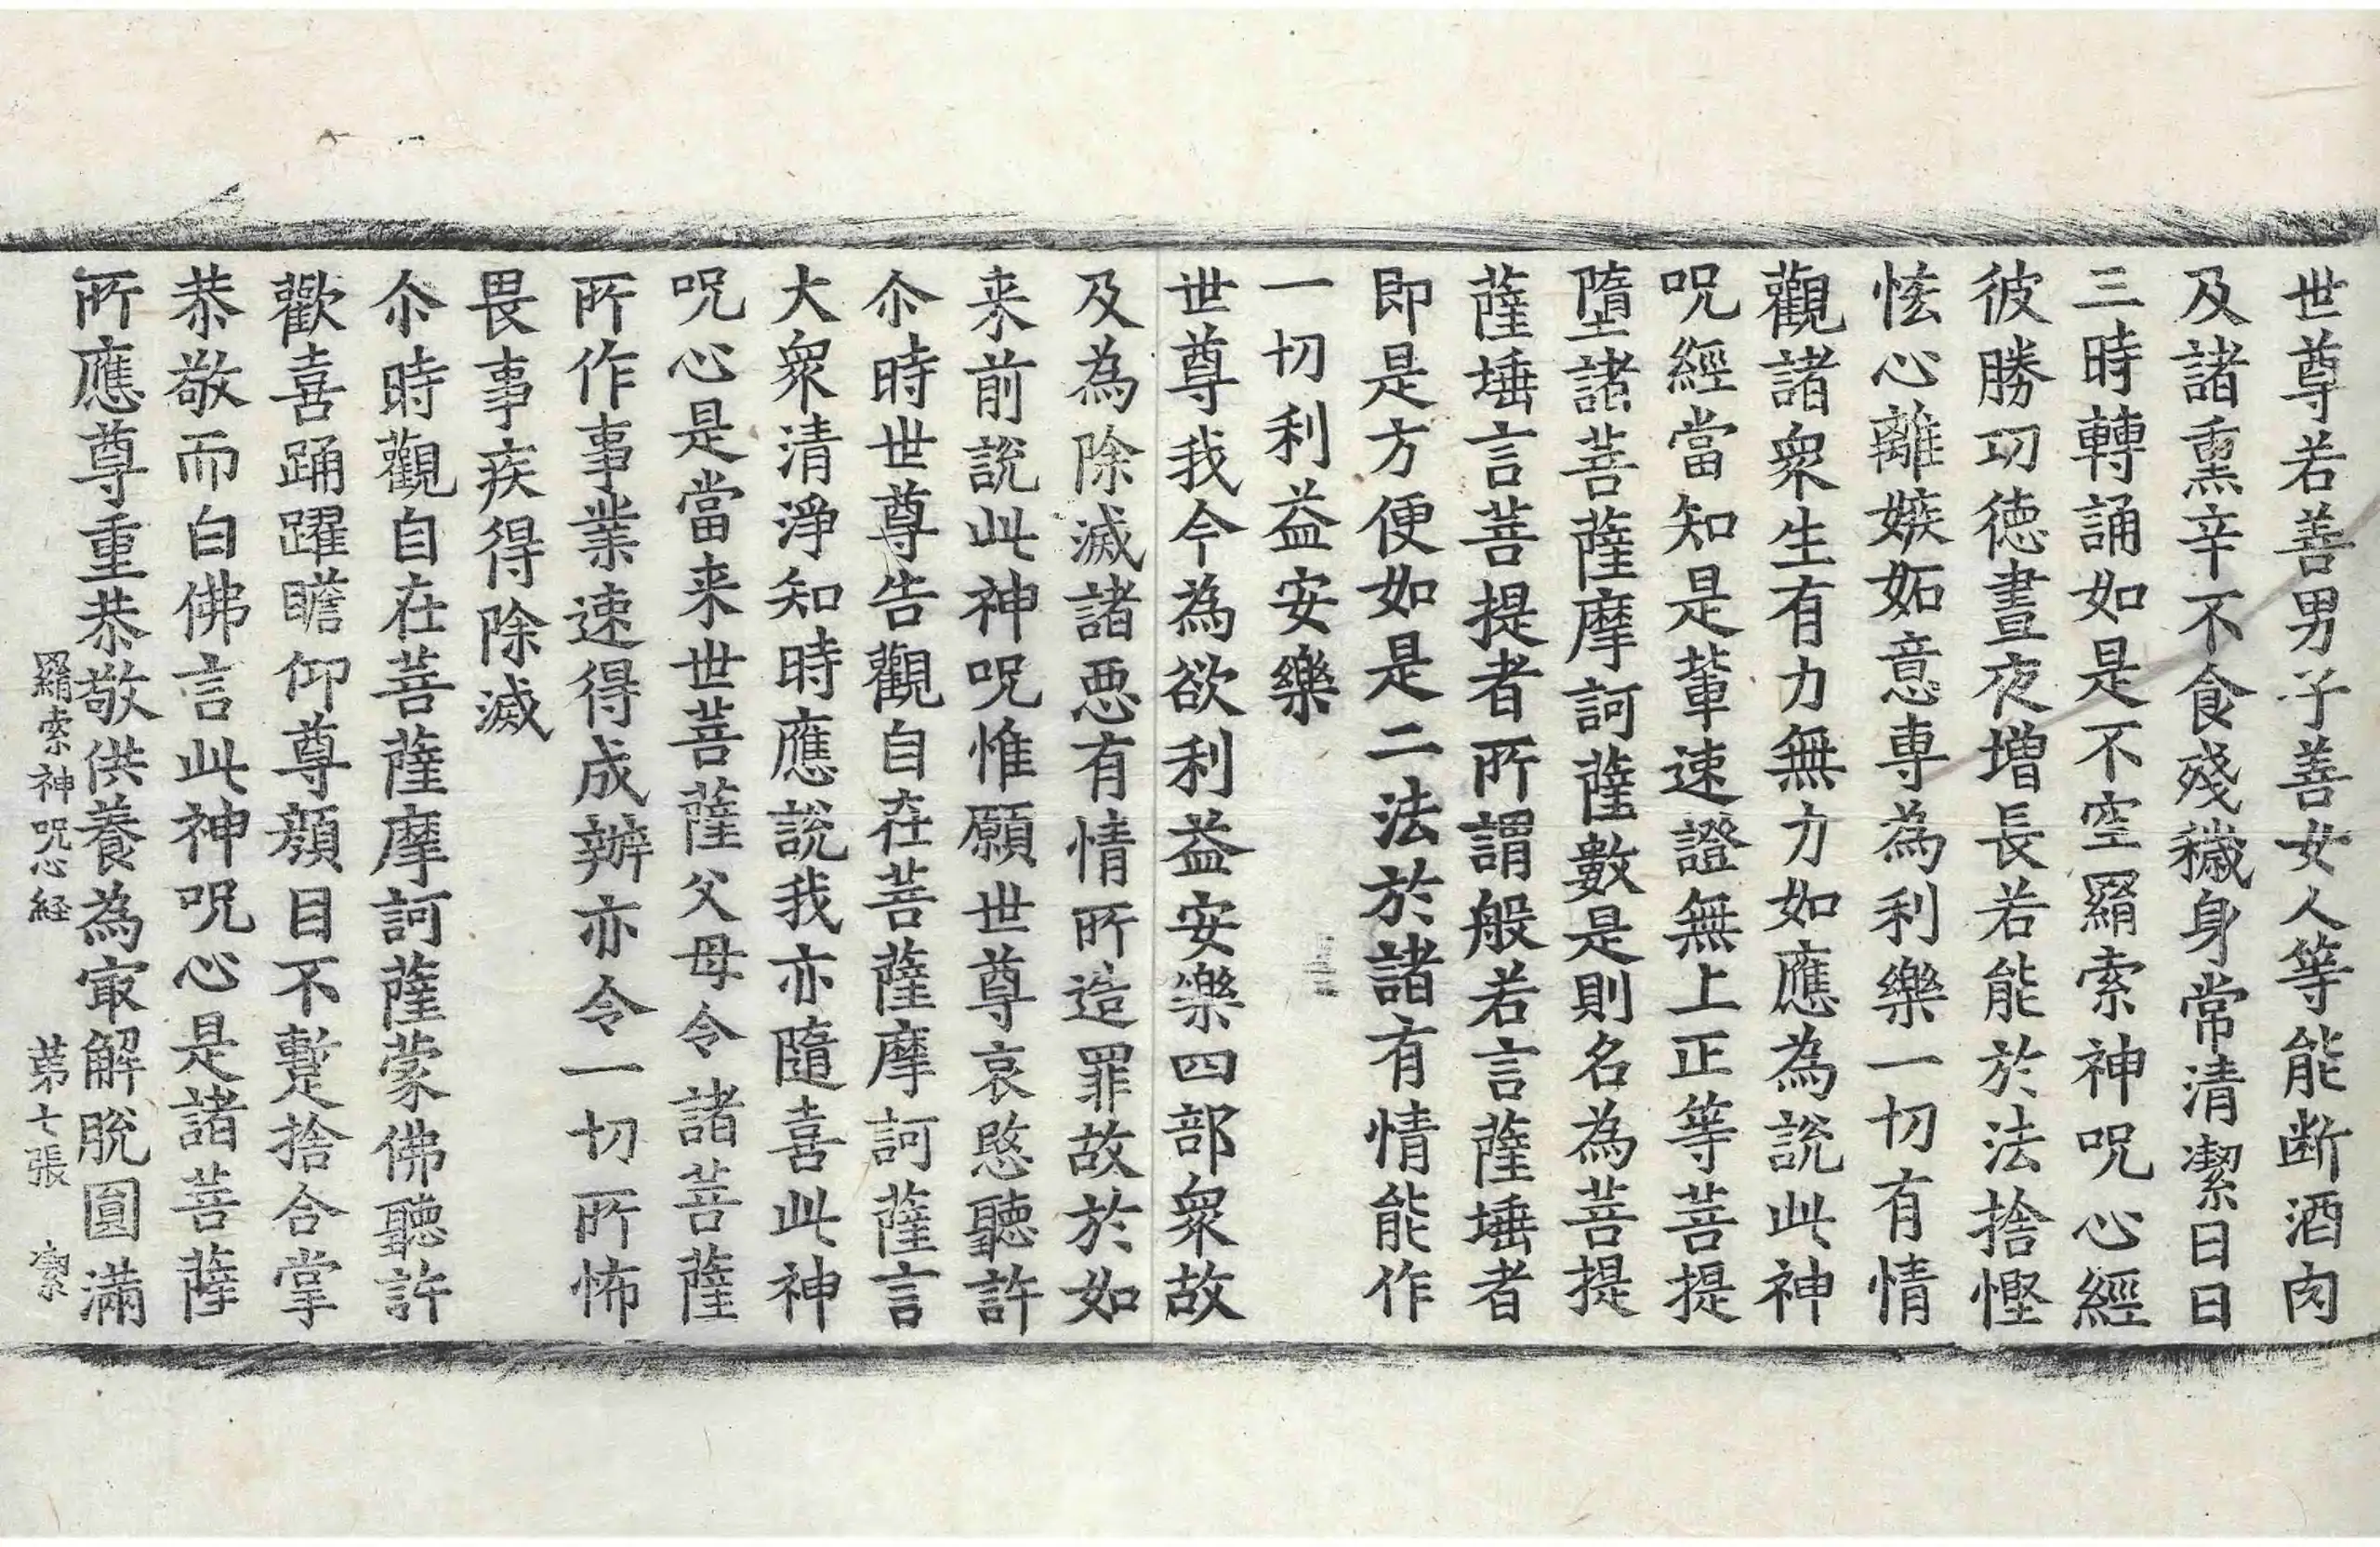 世尊若善男子善女人等能断酒肉
及諸熏辛不食殘穢身常清潔日日
三時轉誦如是不空羂索神呪心經
彼勝功德晝夜增長若能於法捨慳
恡心離嫉妬意專為利樂一切有情
觀諸衆生有力無力如應為說此神
呪經當知是輩速證無上正等菩提
墮諸菩薩摩訶薩數是則名為菩提
薩埵言菩提者所謂般若言薩埵者
即是方便如是二法於諸有情能作
一切利益安樂
世尊我今為欲利益安樂四部衆故
及為除滅諸惡有情所造罪故於如
来前說此神呪惟願世尊哀愍聽許
尒時世尊告觀自在菩薩摩訶薩言
大衆清淨知時應說我亦隨喜此神
呪心是當来世菩薩父母令諸菩薩
所作事業速得成辦亦令一切所怖
畏事疾得除滅
尒時觀自在菩薩摩訶薩蒙佛聽許
歡喜踊躍瞻仰尊顏目不蹔捨合掌
恭敬而白佛言此神呪心是諸菩薩
所應尊重恭敬供養為㝡解脫圓滿
羂索神呪心経 苐七張 潔